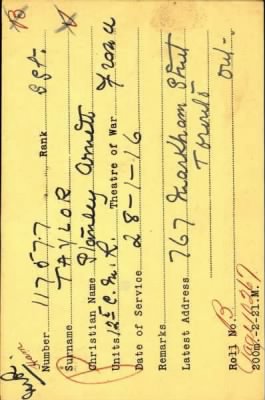 B V
Number 117577 Rank Sgt.
Surname TAYLOR
Christian Name Stanley Arnett
Units 12th C. M. R. Theatre of War France
Date of Service 28-1-16
Remarks
Latest Address 767 Markham Street
Toronto Ont.
Roll No. B
200m.-2-21.M.